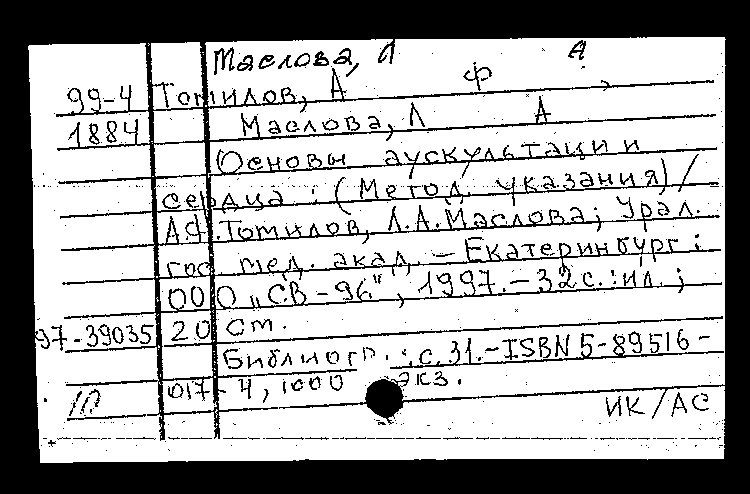 Маслова, Л А
99-4 Томилов, А Ф
1884 Маслова, Л А
Основы аускультации
сердца : (Метод. указания) /
А.Ф. Томилов, Л.А. Маслова; Урал.
гос. мед. акад. – Екатеринбург :
ООО „СВ-96", 1997. – 32 с. : ил. ;
97-39035 20 см.
Библиогр.: с. 31. – ISBN 5-89516-
10 017-4, 1000 экз.
ИК/АС